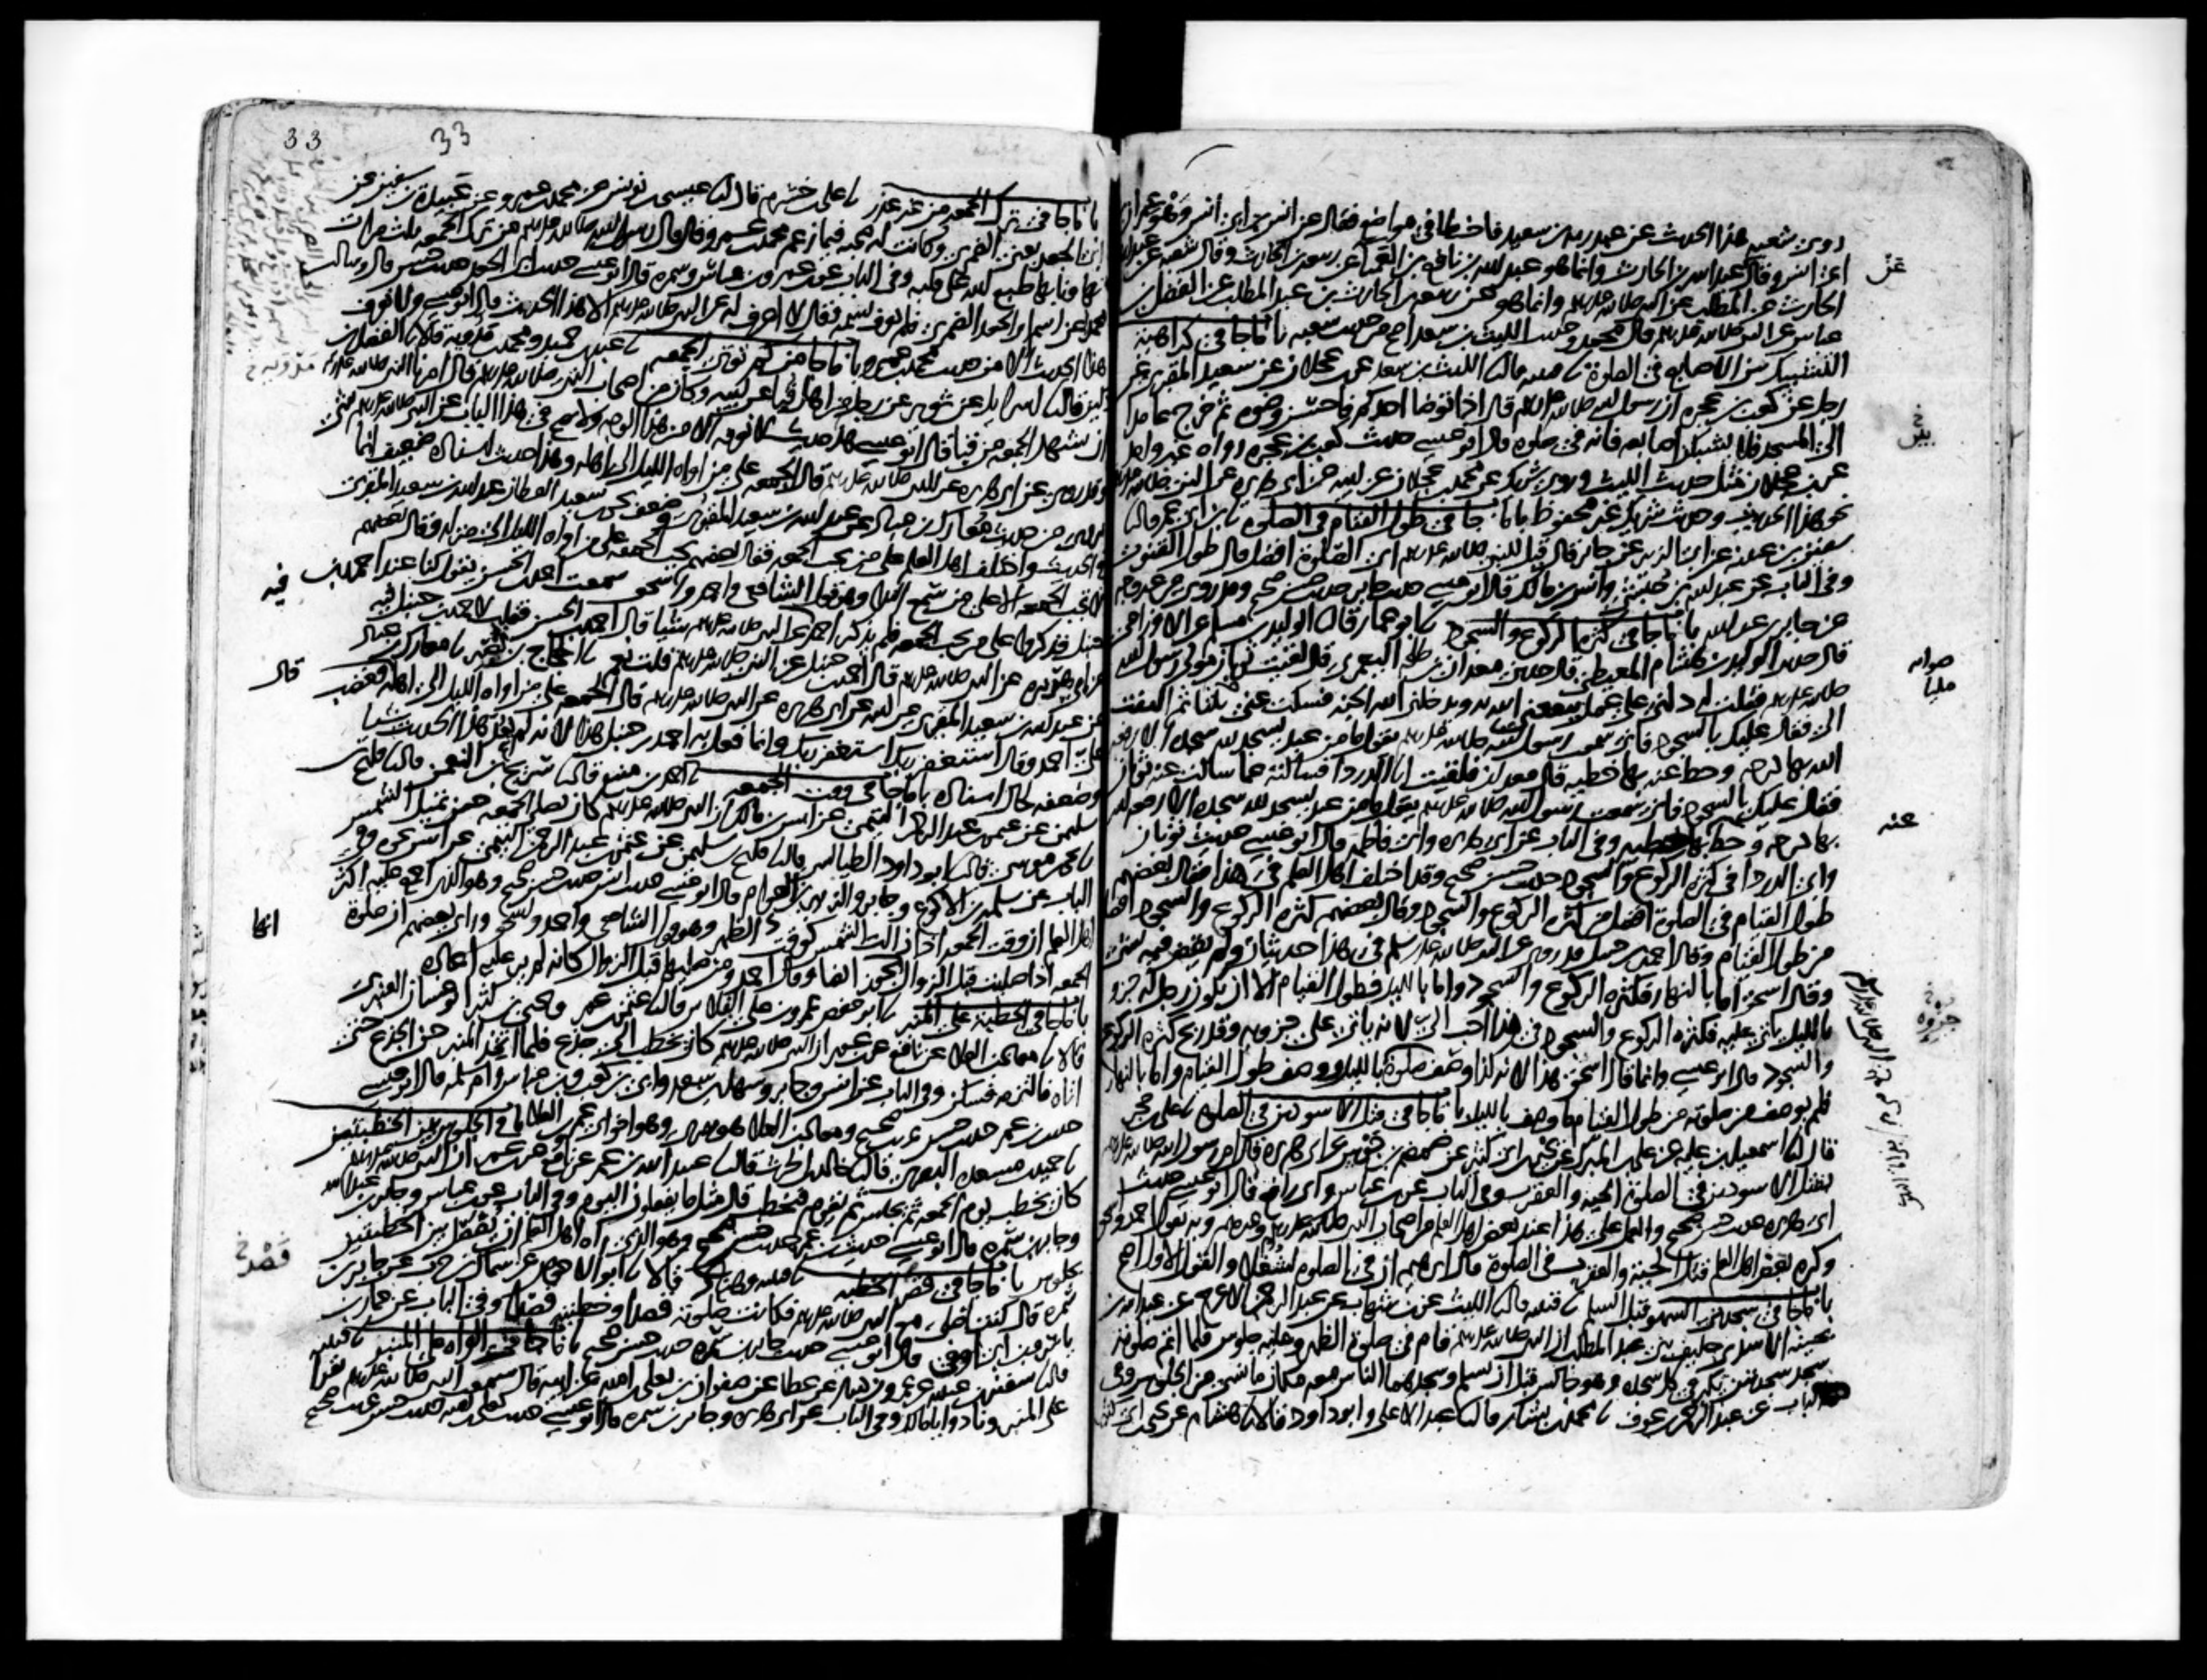 روى شعبه هذا الحديث عن عبد ربه بن سعيد فاخطا في مواضع فقال عن انس بن ابي انس وهو عمران
ابن ابي انس وقال عبد الله بن الحارث وانما هو عبد الله بن نافع بن العميا عن ربيعه بن الحارث وقال شعبه عن عبد الله
الحارث عن المطلب عن النبي صلى الله عليه وسلم وانما هو عن ربيعه بن الحارث بن عبد المطلب عن الفضل بن
عباس عن النبي صلى الله عليه وسلم قال محمد وحديث الليث بن سعد اصح من حديث شعبه باب ما جا في كراهية
التشبيك بين الاصابع في الصلوة نا قتيبه قال نا الليث بن سعد عن ابن عجلان عن سعيد المقبري عن
رجل عن كعب بن عجره ان رسول الله صلى الله عليه وسلم قال اذا توضا احدكم فاحسن وضوه ثم خرج عامدا
الى المسجد فلا يشبكن اصابعه فانه في صلوة قال ابو عيسى حديث كعب بن عجره رواه غير واحد
عن ابن عجلان مثل حديث الليث وروى شريك عن محمد بن عجلان عن ابيه عن ابي هريره عن النبي صلى الله عليه وسلم
نحو هذا الحديث وحديث شريك غير محفوظ باب ما جا في طول القيام في الصلوة نا ابن ابي عمر قال نا
سفين بن عيينه عن ابي الزبير عن جابر قال قيل للنبي صلى الله عليه وسلم اي الصلوة افضل قال طول القنوت
وفي الباب عن عبد الله بن حبشي وانس بن مالك قال ابو عيسى حديث جابر حديث حسن صحيح وقد روي من غير وجه
عن جابر بن عبد الله باب ما جا في كثرة الركوع والسجود نا ابو عمار قال نا الوليد بن مسلم عن الاوزاعي
قال حدثني الوليد بن هشام المعيطي قال حدثني معدان بن طلحه اليعمري قال لقيت ثوبان مولى رسول الله
صلى الله عليه وسلم فقلت له دلني على عمل ينفعني الله به ويدخلني الله الجنه فسكت عني مليا ثم التفت
الي فقال عليك بالسجود فاني سمعت رسول الله صلى الله عليه وسلم يقول ما من عبد يسجد لله سجدة الا رفعه
الله بها درجه وحط عنه بها خطيه قال معدان فلقيت ابا الدردا فسالته عما سالت عنه ثوبان
فقال عليك بالسجود فاني سمعت رسول الله صلى الله عليه وسلم يقول ما من عبد يسجد لله سجده الا رفعه الله
بها درجه وحط بها خطيه وفي الباب عن ابي هريره وابي فاطمه قال ابو عيسى حديث ثوبان
وابي الدردا في كثرة الركوع والسجود حديث حسن صحيح وقد اختلف اهل العلم في هذا فقال بعضهم
طول القيام في الصلوة افضل من كثره الركوع والسجود وقال بعضهم كثره الركوع والسجود افضل
من طول القيام وقال احمد بن حنبل قد روي عن النبي صلى الله عليه وسلم في هذا حديثان ولم يقض فيه بشي
وقال اسحق اما بالنهار فكثره الركوع والسجود واما بالليل فطول القيام الا ان يكون رجل له جزو
بالليل ياتي عليه فكثره الركوع والسجود في هذا احب الي لانه ياتي على جزوه وقد ربح كثره الركوع
والسجود قال ابو عيسى وانما قال اسحق هذا لانه كذا وصف صلوة بالليل ووصف طول القيام واما بالنهار
فلم يوصف من صلوته من طول القيام ما وصف بالليل باب ما جا في قتل الاسودين في الصلوه نا علي بن حجر
قال نا اسمعيل بن عليه عن علي بن المبارك عن يحيى بن ابي كثير عن ضمضم بن جوس عن ابي هريره قال امر رسول الله صلى الله عليه وسلم
بقتل الاسودين في الصلوة الحيه والعقرب وفي الباب عن ابن عباس وابي رافع قال ابو عيسى حديث
ابي هريره حديث حسن صحيح والعمل على هذا عند بعض اهل العلم من اصحاب النبي صلى الله عليه وسلم وغيرهم وبه يقول احمد واسحق
وكره بعض اهل العلم قتل الحية والعقرب في الصلوة قال ابرهيم ان في الصلوه لشغلا والقول الاول اصح
باب ما جا في سجدتي السهو قبل السلم نا قتيبه قال نا الليث عن ابن شهاب عن عبد الرحمن الاعرج عن عبد الله بن
بحينة الاسدي حليف بني عبد المطلب ان النبي صلى الله عليه وسلم قام في صلوة الظهر وعليه جلوس فلما اتم صلوته
سجد سجدتين يكبر في كل سجده وهو جالس قبل ان يسلم وسجدهما الناس معه مكان ما نسي من الجلوس وفي
الباب عن عبد الرحمن بن عوف نا محمد بن بشار قال نا عبد الاعلى وابو داود قالا نا هشام عن يحيى بن ابي
عن
صوابه
مليا
عنه
جزوه
33
33
باب ما جا في ترك الجمعه من غير عذر نا علي بن خشرم قال نا عيسى بن يونس عن محمد بن عمرو عن عبيدة بن سفين عن
ابي الجعد يعني الضمري وكانت له صحبه فيما زعم محمد بن عمرو قال قال رسول الله صلى الله عليه وسلم من ترك الجمعه ثلث مرات
تهاونا بها طبع الله على قلبه وفي الباب عن ابن عمر وابن عباس وسمره قال ابو عيسى حديث ابي الجعد حديث حسن قال وسالت
محمدا عن اسم ابي الجعد الضمري فلم يعرف اسمه فقال لا اعرف له عن النبي صلى الله عليه وسلم الا هذا الحديث قال ابو عيسى ولا نعرف
هذا الحديث الا من حديث محمد بن عمرو باب ما جا من كم توتى الجمعه نا عبد بن حميد ومحمد بن مدويه قالا نا الفضل بن
دكين قال نا اسرايل عن ثوير عن رجل من اهل قبا عن ابيه وكان من اصحاب النبي صلى الله عليه وسلم قال امرنا النبي صلى الله عليه وسلم
ان نشهد الجمعه من قبا قال ابو عيسى هذا حديث لا نعرفه الا من هذا الوجه ولا يصح في هذا الباب عن النبي صلى الله عليه وسلم شي
وقد روي عن ابي هريره عن النبي صلى الله عليه وسلم قال الجمعه على من اواه الليل الى اهله وهذا حديث اسناده ضعيف انما
يروى من حديث معارك بن عباد عن عبد الله بن سعيد المقبري وضعف يحيى بن سعيد القطان عبد الله بن سعيد المقبري
في الحديث واختلف اهل العلم على من تجب الجمعه فقال بعضهم تجب الجمعه على من اواه الليل الى منزله وقال بعضهم
لا تجب الجمعه الا على من سمع الندا وهو قول الشافعي واحمد واسحق سمعت احمد بن الحسن يقول كنا عند احمد بن
حنبل فذكروا على من تجب الجمعه فلم يذكر احمد عن النبي صلى الله عليه وسلم شيا قال احمد بن الحسن فقلت لاحمد بن حنبل فيه
عن ابي هريره عن النبي صلى الله عليه وسلم قال احمد بن حنبل عن النبي صلى الله عليه وسلم قلت نعم نا الحجاج بن نصير نا معارك بن عباد
عن عبد الله بن سعيد المقبري عن ابيه عن ابي هريره عن النبي صلى الله عليه وسلم قال الجمعه على من اواه الليل الى اهله فغضب
علي احمد وقال استغفر ربك استغفر ربك وانما فعل به احمد بن حنبل هذا لانه لم يعد هذا الحديث شيا
وضعفه لحال اسناده باب ما جا في وقت الجمعه نا احمد بن منيع قال نا سريج بن النعمن قال نا فليح بن
سليمن عن عثمن بن عبد الرحمن التيمي عن انس بن مالك ان النبي صلى الله عليه وسلم كان يصلي الجمعه حين تميل الشمس
نا يحيى بن موسى قال نا ابو داود الطيالسي قال نا فليح بن سليمن عن عثمن بن عبد الرحمن التيمي عن انس نحوه وفي
الباب عن سلمه بن الاكوع وجابر والزبير بن العوام قال ابو عيسى حديث انس حديث حسن صحيح وهو الذي اجمع عليه اكثر
اهل العلم ان وقت الجمعه اذا زالت الشمس كوقت الظهر وهو قول الشافعي واحمد واسحق وراى بعضهم ان صلوة
الجمعه اذا صليت قبل الزوال تجوز ايضا وقال احمد ومن صلاها قبل الزوال كانه لم ير عليه اعاده
باب ما جا في الخطبة على المنبر نا ابو حفص عمرو بن علي الفلاس قال نا عثمن بن عمر ويحيى بن كثير ابو غسان العنبري
قالا نا معاذ بن العلا عن نافع عن ابن عمر ان النبي صلى الله عليه وسلم كان يخطب الى جذع فلما اتخذ المنبر حن الجذع حتى
اتاه فالتزمه فسكن وفي الباب عن انس وجابر وسهل بن سعد وابي بن كعب وابن عباس وام سلمه قال ابو عيسى
حديث ابن عمر حديث حسن غريب صحيح ومعاذ بن العلا هو بصري وهو اخو ابي عمرو بن العلا باب ما جا في الجلوس بين الخطبتين
نا حميد بن مسعده البصري قال نا خالد بن الحارث قال نا عبيد الله بن عمر عن نافع عن ابن عمر ان النبي صلى الله عليه وسلم
كان يخطب يوم الجمعه ثم يجلس ثم يقوم فيخطب قال مثل ما يفعلون اليوم وفي الباب عن ابن عباس وجابر بن عبد الله
وجابر بن سمره قال ابو عيسى حديث ابن عمر حديث حسن صحيح وهو الذي راه اهل العلم ان يفصل بين الخطبتين
بجلوس باب ما جا في قصر الخطبه نا قتيبه وهناد قالا نا ابو الاحوص عن سماك بن حرب عن جابر بن
سمره قال كنت اصلي مع النبي صلى الله عليه وسلم فكانت صلوته قصدا وخطبته قصدا وفي الباب عن عمار بن
ياسر وابن ابي اوفى قال ابو عيسى حديث جابر بن سمره حديث حسن صحيح باب ما جا في القراه على المنبر نا قتيبه
قال نا سفين بن عيينه عن عمرو بن دينار عن عطا عن صفوان بن يعلى بن اميه عن ابيه قال سمعت النبي صلى الله عليه وسلم يقرا
على المنبر ونادوا يا مالك وفي الباب عن ابي هريره وجابر بن سمره قال ابو عيسى حديث يعلى بن اميه حديث حسن غريب صحيح
مدويه
فيه
قال
ايضا
قصر